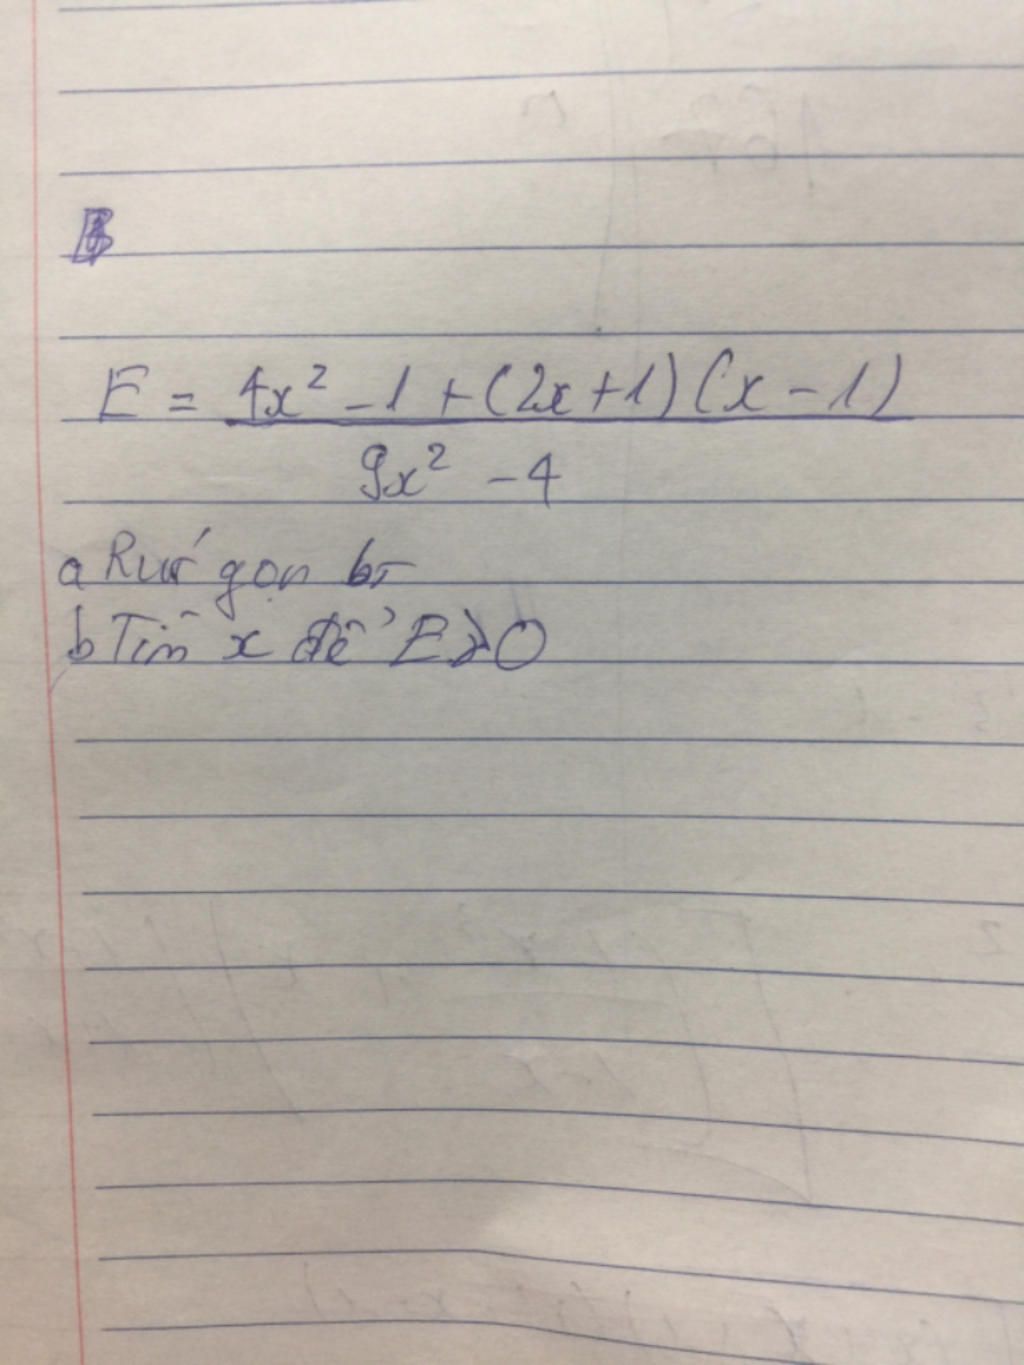 E = 4x² - 1 + (2x + 1) (x - 1)
9x² - 4
a Rút gọn bt
b Tìm x để E > 0